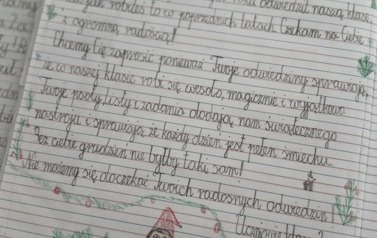 jak robiłeś to w poprzednich latach. Czekam na Ciebie
z ogromną radością!
Chcemy Cię zaprosić ponieważ Twoje odwiedziny sprawiają,
że w naszej klasie robi się wesoło, magicznie i wyjątkowo
Twoje psoty, listy i zadania dodają nam świątecznego
nastroju i sprawiają, że każdy dzień jest pełen śmiechu.
Bez ciebie grudzień nie byłby taki sam!
Nie możemy się doczekać Twoich radosnych odwiedzin!
Uczniowie klasy